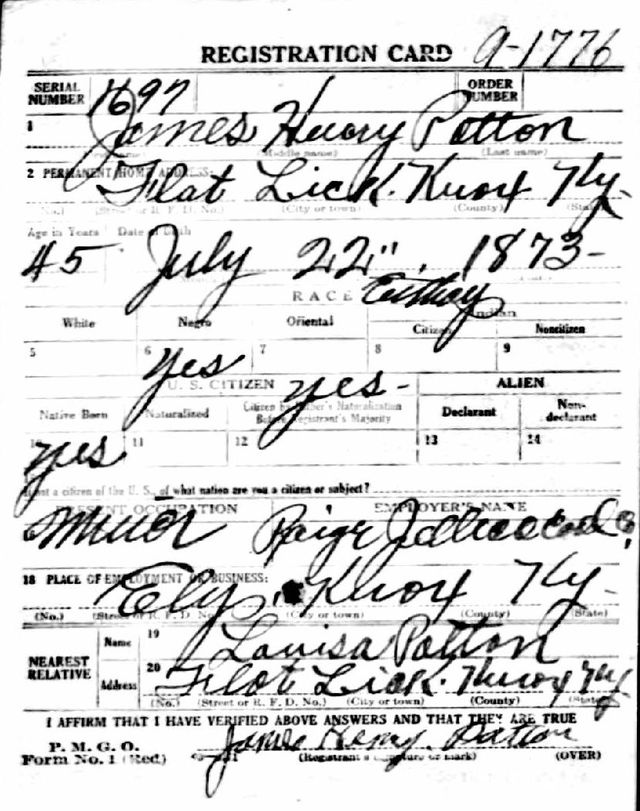 REGISTRATION CARD 9-1776
SERIAL NUMBER 1697 ORDER NUMBER
1 James Henry Patton
(Middle name) (Last name)
2 PERMANENT HOME ADDRESS:
Flat Lick. Knox Ky.
(No.) (Street or R. F. D. No.) (City or town) (County) (State)
Age in Years Date of Birth
45 July 22" . 1873-
RACE
White Negro Oriental Indian
Citizen Noncitizen
5 6 Yes 7 8 9
U. S. CITIZEN yes- ALIEN
Native Born Naturalized Citizen by Father's Naturalization Before Registrant's Majority Declarant Non-declarant
10 yes 11 12 13 14
If not a citizen of the U. S., of what nation are you a citizen or subject?
PRESENT OCCUPATION EMPLOYER'S NAME
Minor Jellico
18 PLACE OF EMPLOYMENT OR BUSINESS:
Ely. Knox Ky-
(No.) (Street or R. F. D. No.) (City or town) (County) (State)
NEAREST RELATIVE Name 19 Louisa Patton
Address 20 Flat Lick. Knox Ky
(No.) (Street or R. F. D. No.) (City or town) (County) (State)
I AFFIRM THAT I HAVE VERIFIED ABOVE ANSWERS AND THAT THEY ARE TRUE
P. M. G. O.
Form No. 1 (Red) James Henry. Patton
(Registrant's signature or mark) (OVER)